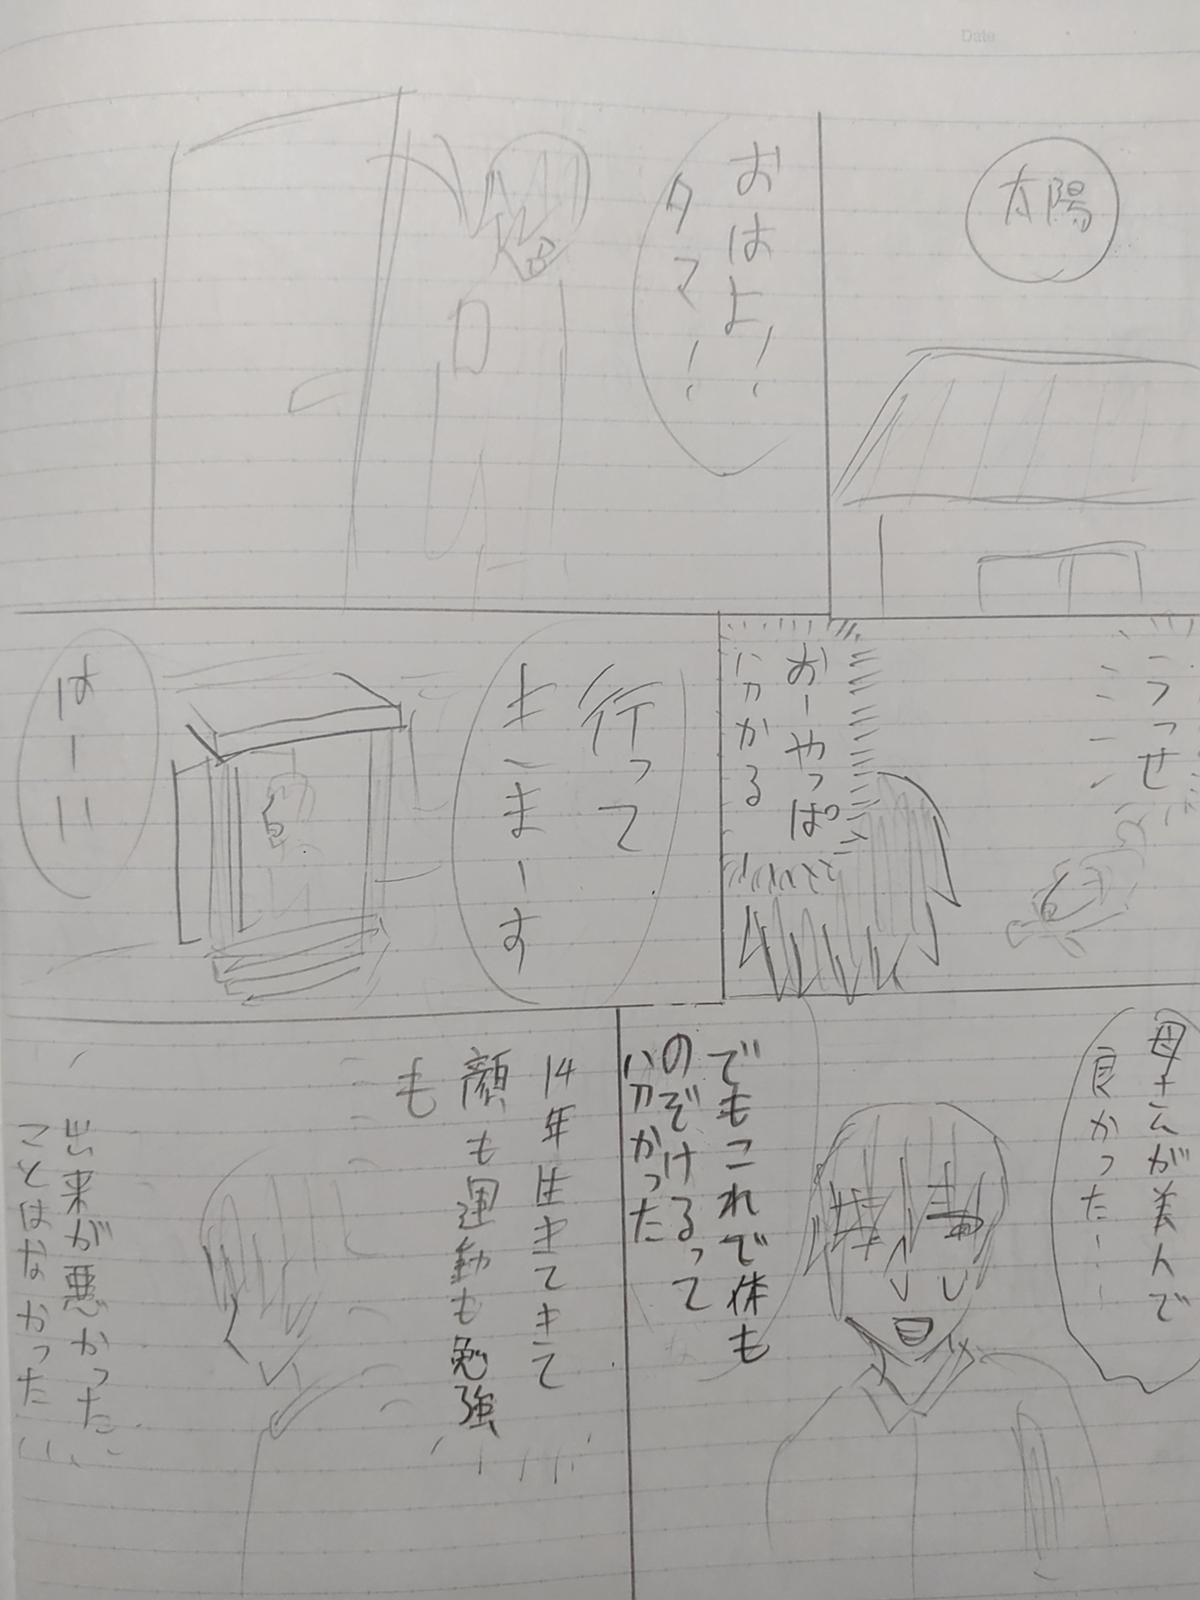 Date
太陽
おはよ!
タマ!
うっせ
おーやっぱ
分かる
行って
きまーす
はーい
母さんが美人で
良かったー
でもこれで体も
のぞけるって
分かった
14年生きてきて
顔も運動も勉強
も
出来が悪かった
ことはなかった